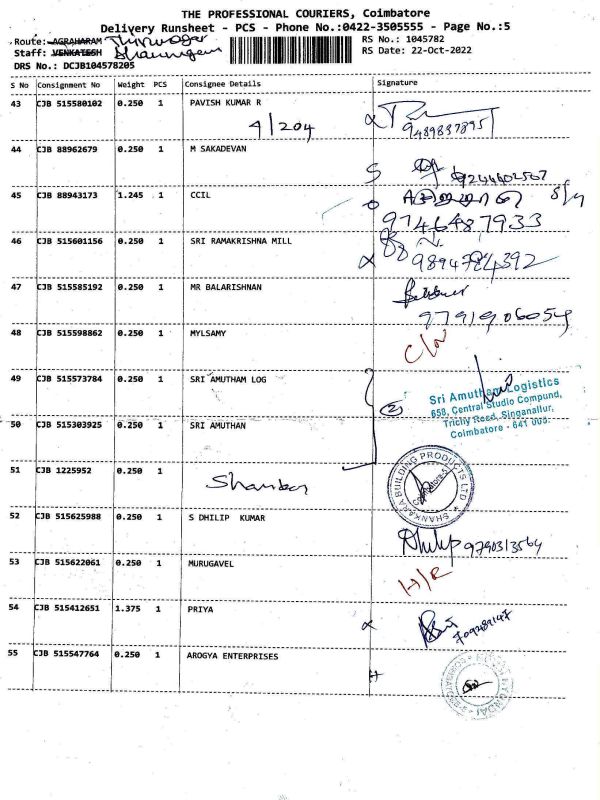 THE PROFESSIONAL COURIERS, Coimbatore
Delivery Runsheet - PCS - Phone No.:0422-3505555 - Page No.:5
Route: AGRAHARAM
RS No.: 1045782
Staff: VENKATESH
RS Date: 22-Oct-2022
DRS No.: DCJB104578205
S No Consignment No Weight PCS Consignee Details Signature
43 CJB 515580102 0.250 1 PAVISH KUMAR R
4/204
9489837895
44 CJB 88962679 0.250 1 M SAKADEVAN
9244602567
45 CJB 88943173 1.245 1 CCIL
9746487933
46 CJB 515601156 0.250 1 SRI RAMAKRISHNA MILL
9894784392
47 CJB 515585192 0.250 1 MR BALARISHNAN
9791906054
48 CJB 515598862 0.250 1 MYLSAMY
49 CJB 515573784 0.250 1 SRI AMUTHAM LOG
Sri Amutham Logistics
658, Central Studio Compund,
Trichy Road, Singanallur,
Coimbatore - 641 005.
50 CJB 515303925 0.250 1 SRI AMUTHAN
2
51 CJB 1225952 0.250 1
Shankar
SHANKARA BUILDING PRODUCTS LTD
52 CJB 515625988 0.250 1 S DHILIP KUMAR
Dhilip 9790313564
53 CJB 515622061 0.250 1 MURUGAVEL
54 CJB 515412651 1.375 1 PRIYA
55 CJB 515547764 0.250 1 AROGYA ENTERPRISES